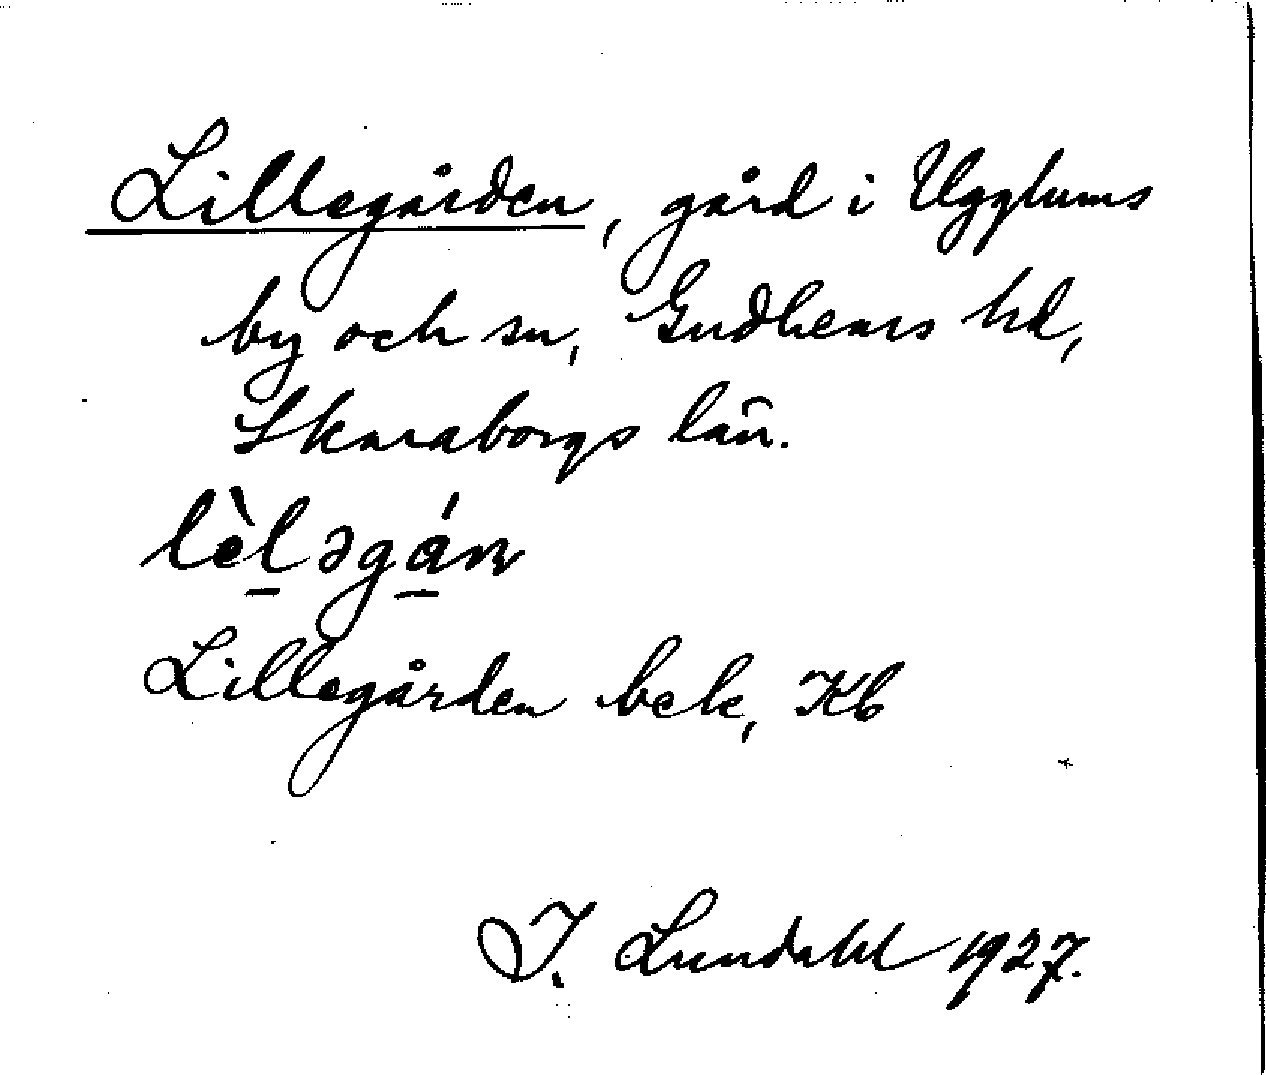 Lillegården, gård i Ugglums
by och sn, Gudhems hd,
Skaraborgs län.
lèləgán
Lillegården bek, Kb
I. Lundahl 1927.